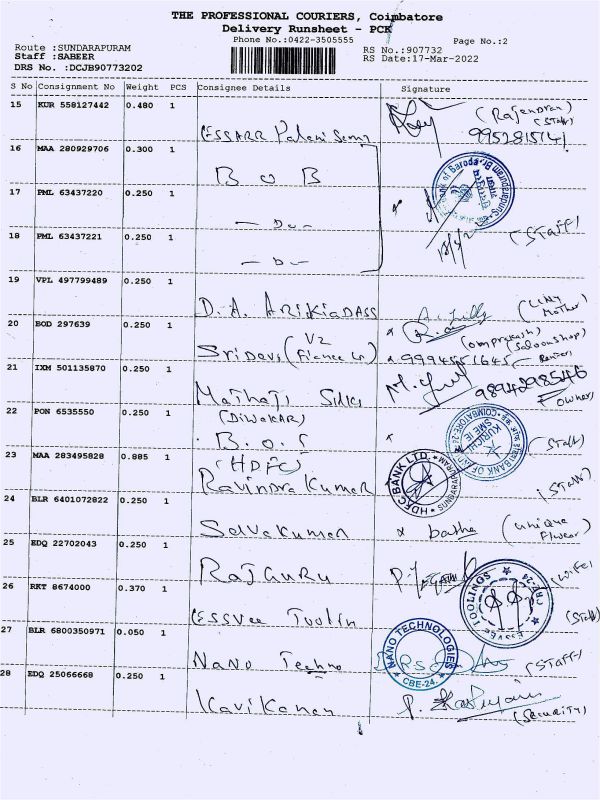 THE PROFESSIONAL COURIERS, Coimbatore
Delivery Runsheet - PCK
Phone No.:0422-3505555
Page No.:2
Route :SUNDARAPURAM
RS No.:907732
Staff :SABEER
RS Date:17-Mar-2022
DRS No. :DCJB90773202
S No Consignment No Weight PCS Consignee Details Signature
15 KUR 558127442 0.480 1
(Rajendran)
(Staff)
ESSARR Palani Samy
16 MAA 280929706 0.300 1
B O B
17 PML 63437220 0.250 1
— Do —
18 PML 63437221 0.250 1
(Staff)
— D —
19 VPL 497799489 0.250 1
D. A. ARIKIADASS
A. Lilly
Mother)
20 BOD 297639 0.250 1
V2
Sri Devs
(Omprakash)
Saloonshop)
9994551645
21 IXM 501135870 0.250 1
9894298546
owner)
22 PON 6535550 0.250 1
(DIWAKAR)
B. O. I
(Staff)
COIMBATORE-24
KURICHI
SME IE
23 MAA 283495828 0.885 1
(HDFC)
Ravindra Kumar
HDFC BANK LTD.
SUNDARAPURAM
(Staff)
24 BLR 6401072822 0.250 1
Selvakumar
(unique
25 EDQ 22702043 0.250 1
RajGuru
(Wife)
26 RKT 8674000 0.370 1
ESSVEE TOOLINGS
CBE-24
Essvee Toolin
(Staff)
27 BLR 6800350971 0.050 1
NANO TECHNOLOGIES
CBE-24.
Nano Techno
(Staff)
28 EDQ 25066668 0.250 1
Kavikanan
(Security)